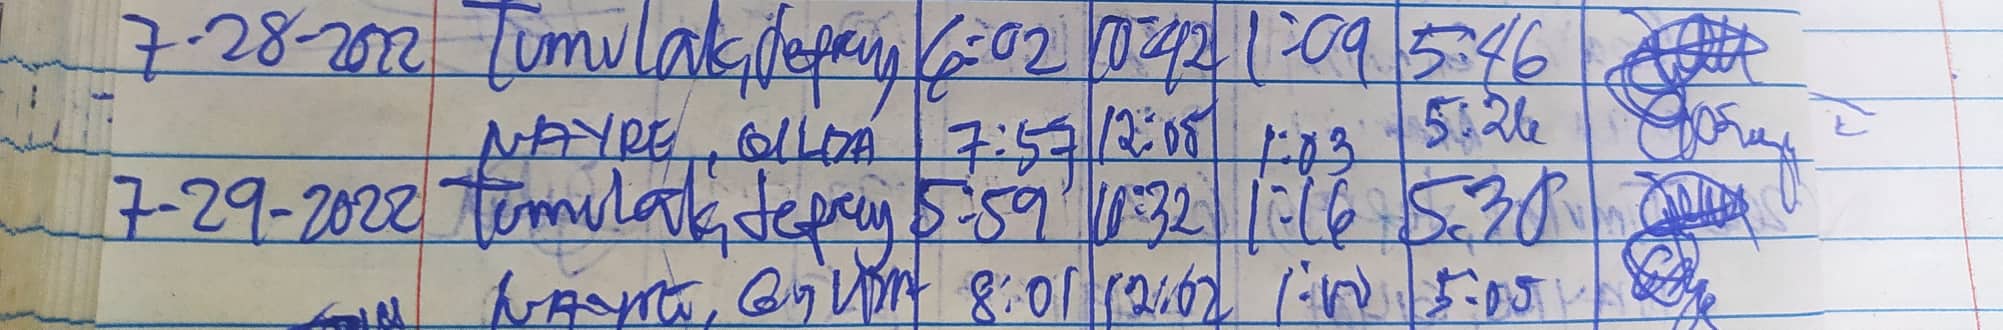 7-28-2022 Tumulak, Jefrey 6:02 10:42 1:09 5:46
NAYRE, GILDA 7:57 12:05 1:03 5:26
7-29-2022 Tumulak, Jefrey 5:59 10:32 1:16 5:30
NAYRE, GILDA 8:01 12:02 1:00 5:05